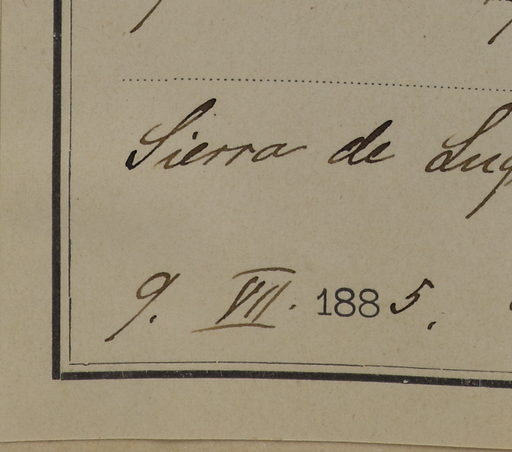 Sierra de Lug
9. VII. 1885.